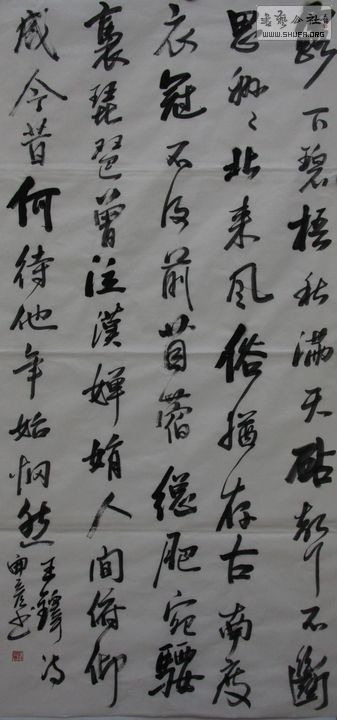 书艺公社
WWW.SHUFA.ORG
下碧梧秋滿天砧聲不斷
思綿〻北来風俗猶存古南度
衣冠不及前苜蓿總肥宛騕
褭琵琶曾泣漢嬋娟人間俯仰
成今昔何待他年始惘然
王鐸詩